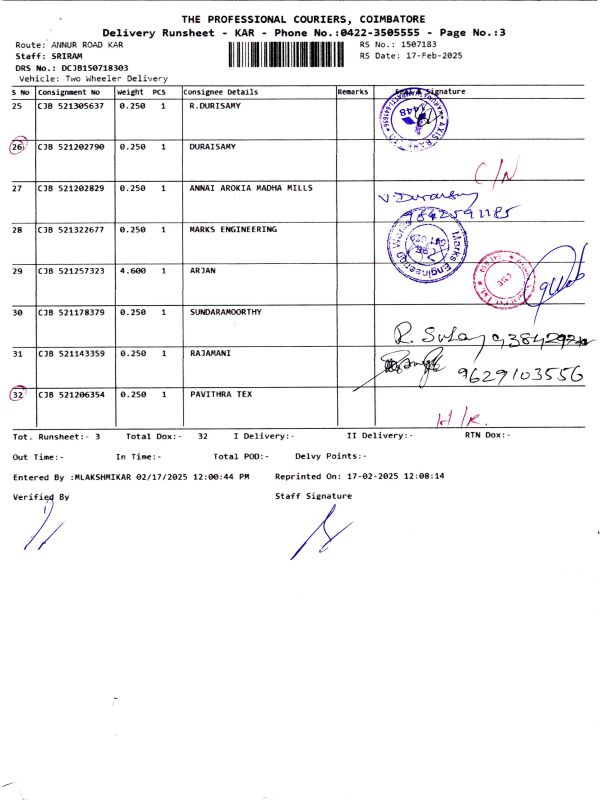 THE PROFESSIONAL COURIERS, COIMBATORE
Delivery Runsheet - KAR - Phone No.:0422-3505555 - Page No.:3
Route: ANNUR ROAD KAR RS No.: 1507183
Staff: SRIRAM RS Date: 17-Feb-2025
DRS No.: DCJB150718303
Vehicle: Two Wheeler Delivery
S No Consignment No Weight PCS Consignee Details Remarks Seal & Signature
25 CJB 521305637 0.250 1 R.DURISAMY
26 CJB 521202790 0.250 1 DURAISAMY
C/N
27 CJB 521202829 0.250 1 ANNAI AROKIA MADHA MILLS
9842591185
28 CJB 521322677 0.250 1 MARKS ENGINEERING
Marks Engineering Works
29 CJB 521257323 4.600 1 ARJAN
30 CJB 521178379 0.250 1 SUNDARAMOORTHY
31 CJB 521143359 0.250 1 RAJAMANI
9629103556
32 CJB 521206354 0.250 1 PAVITHRA TEX
Tot. Runsheet:- 3 Total Dox:- 32 I Delivery:- II Delivery:- RTN Dox:-
Out Time:- In Time:- Total POD:- Delvy Points:-
Entered By :MLAKSHMIKAR 02/17/2025 12:00:44 PM Reprinted On: 17-02-2025 12:08:14
Verified By Staff Signature